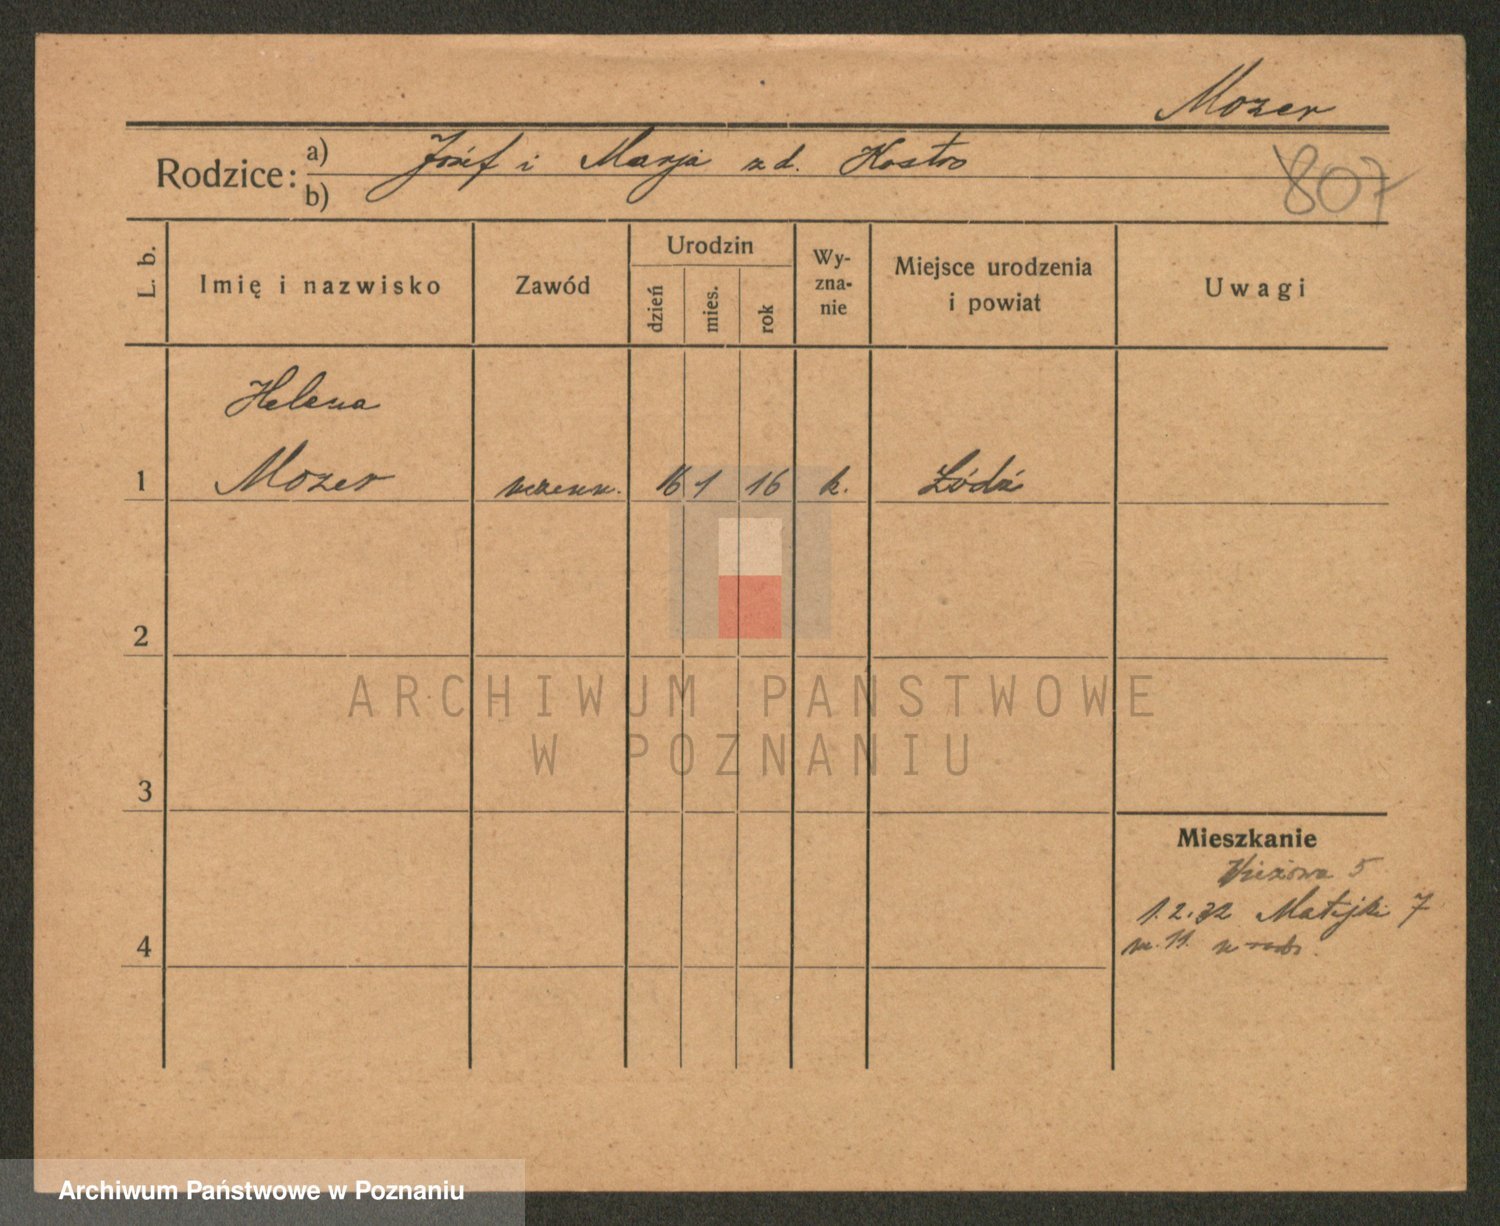 Mozer
Rodzice: a) Józef i Marja z d. Kostro
b)
807
L. b.
Imię i nazwisko
Zawód
Urodzin
dzień
mies.
rok
Wy-
zna-
nie
Miejsce urodzenia
i powiat
Uwagi
Helena
1 Mozer uczenn. 16 1 16 k. Łódź
2
ARCHIWUM PAŃSTWOWE
W POZNANIU
3
Mieszkanie
5
1.2.32 Matejki 7
m. 11.
4
Archiwum Państwowe w Poznaniu